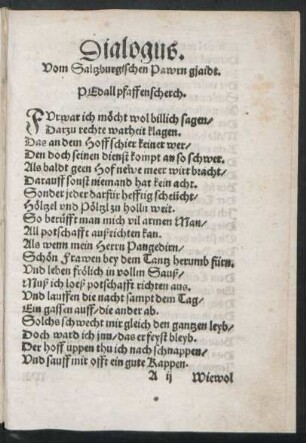 Dialogus.
Vom Saltzburgischen Pawrn gjaidt.
PEdall pfaffenscherch.
FVrwar ich möcht wol billich sagen/
Darzu rechte warheit klagen.
Das an dem Hoff schier keiner wer/
Den doch seinen dienst kompt an so schwer.
Als baldt geen Hof newe meer wirt bracht/
Darauff sonst niemand hat kein acht.
Sonder jeder darfür hefftig schelicht/
Höltzel vnd Pöltzl zu holln weit.
So berüfft man mich vil armen Man/
All potschafft außrichten kan.
Als wenn mein Herrn Pangedirn/
Schön Frawen bey dem Tantz herumb fürn.
Vnd leben frölich in vollm Sauß/
Muß ich loeß potschafft richten aus.
Vnd lauffen die nacht sampt dem Tag/
Ein gassen auff/die ander ab.
Solchs schwecht mir gleich den gantzen leyb/
Doch ward ich jnn/das er feyst bleyb.
Der hoff uppen thu ich nach schnappen/
Vnd sauff mit offt ein gute Kappen.
A ij Wiewol